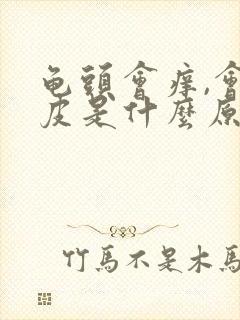 龟頭會痒,會
皮是什麼原
竹馬不是木馬